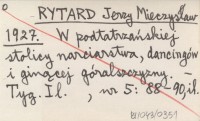 RYTARD Jerzy Mieczysław
1927. W podtatrzańskiej
stolicy narciarstwa, dancingów
i ginącej góralszczyzny. –
Tyg. Il. , nr 5: 88-90, il.